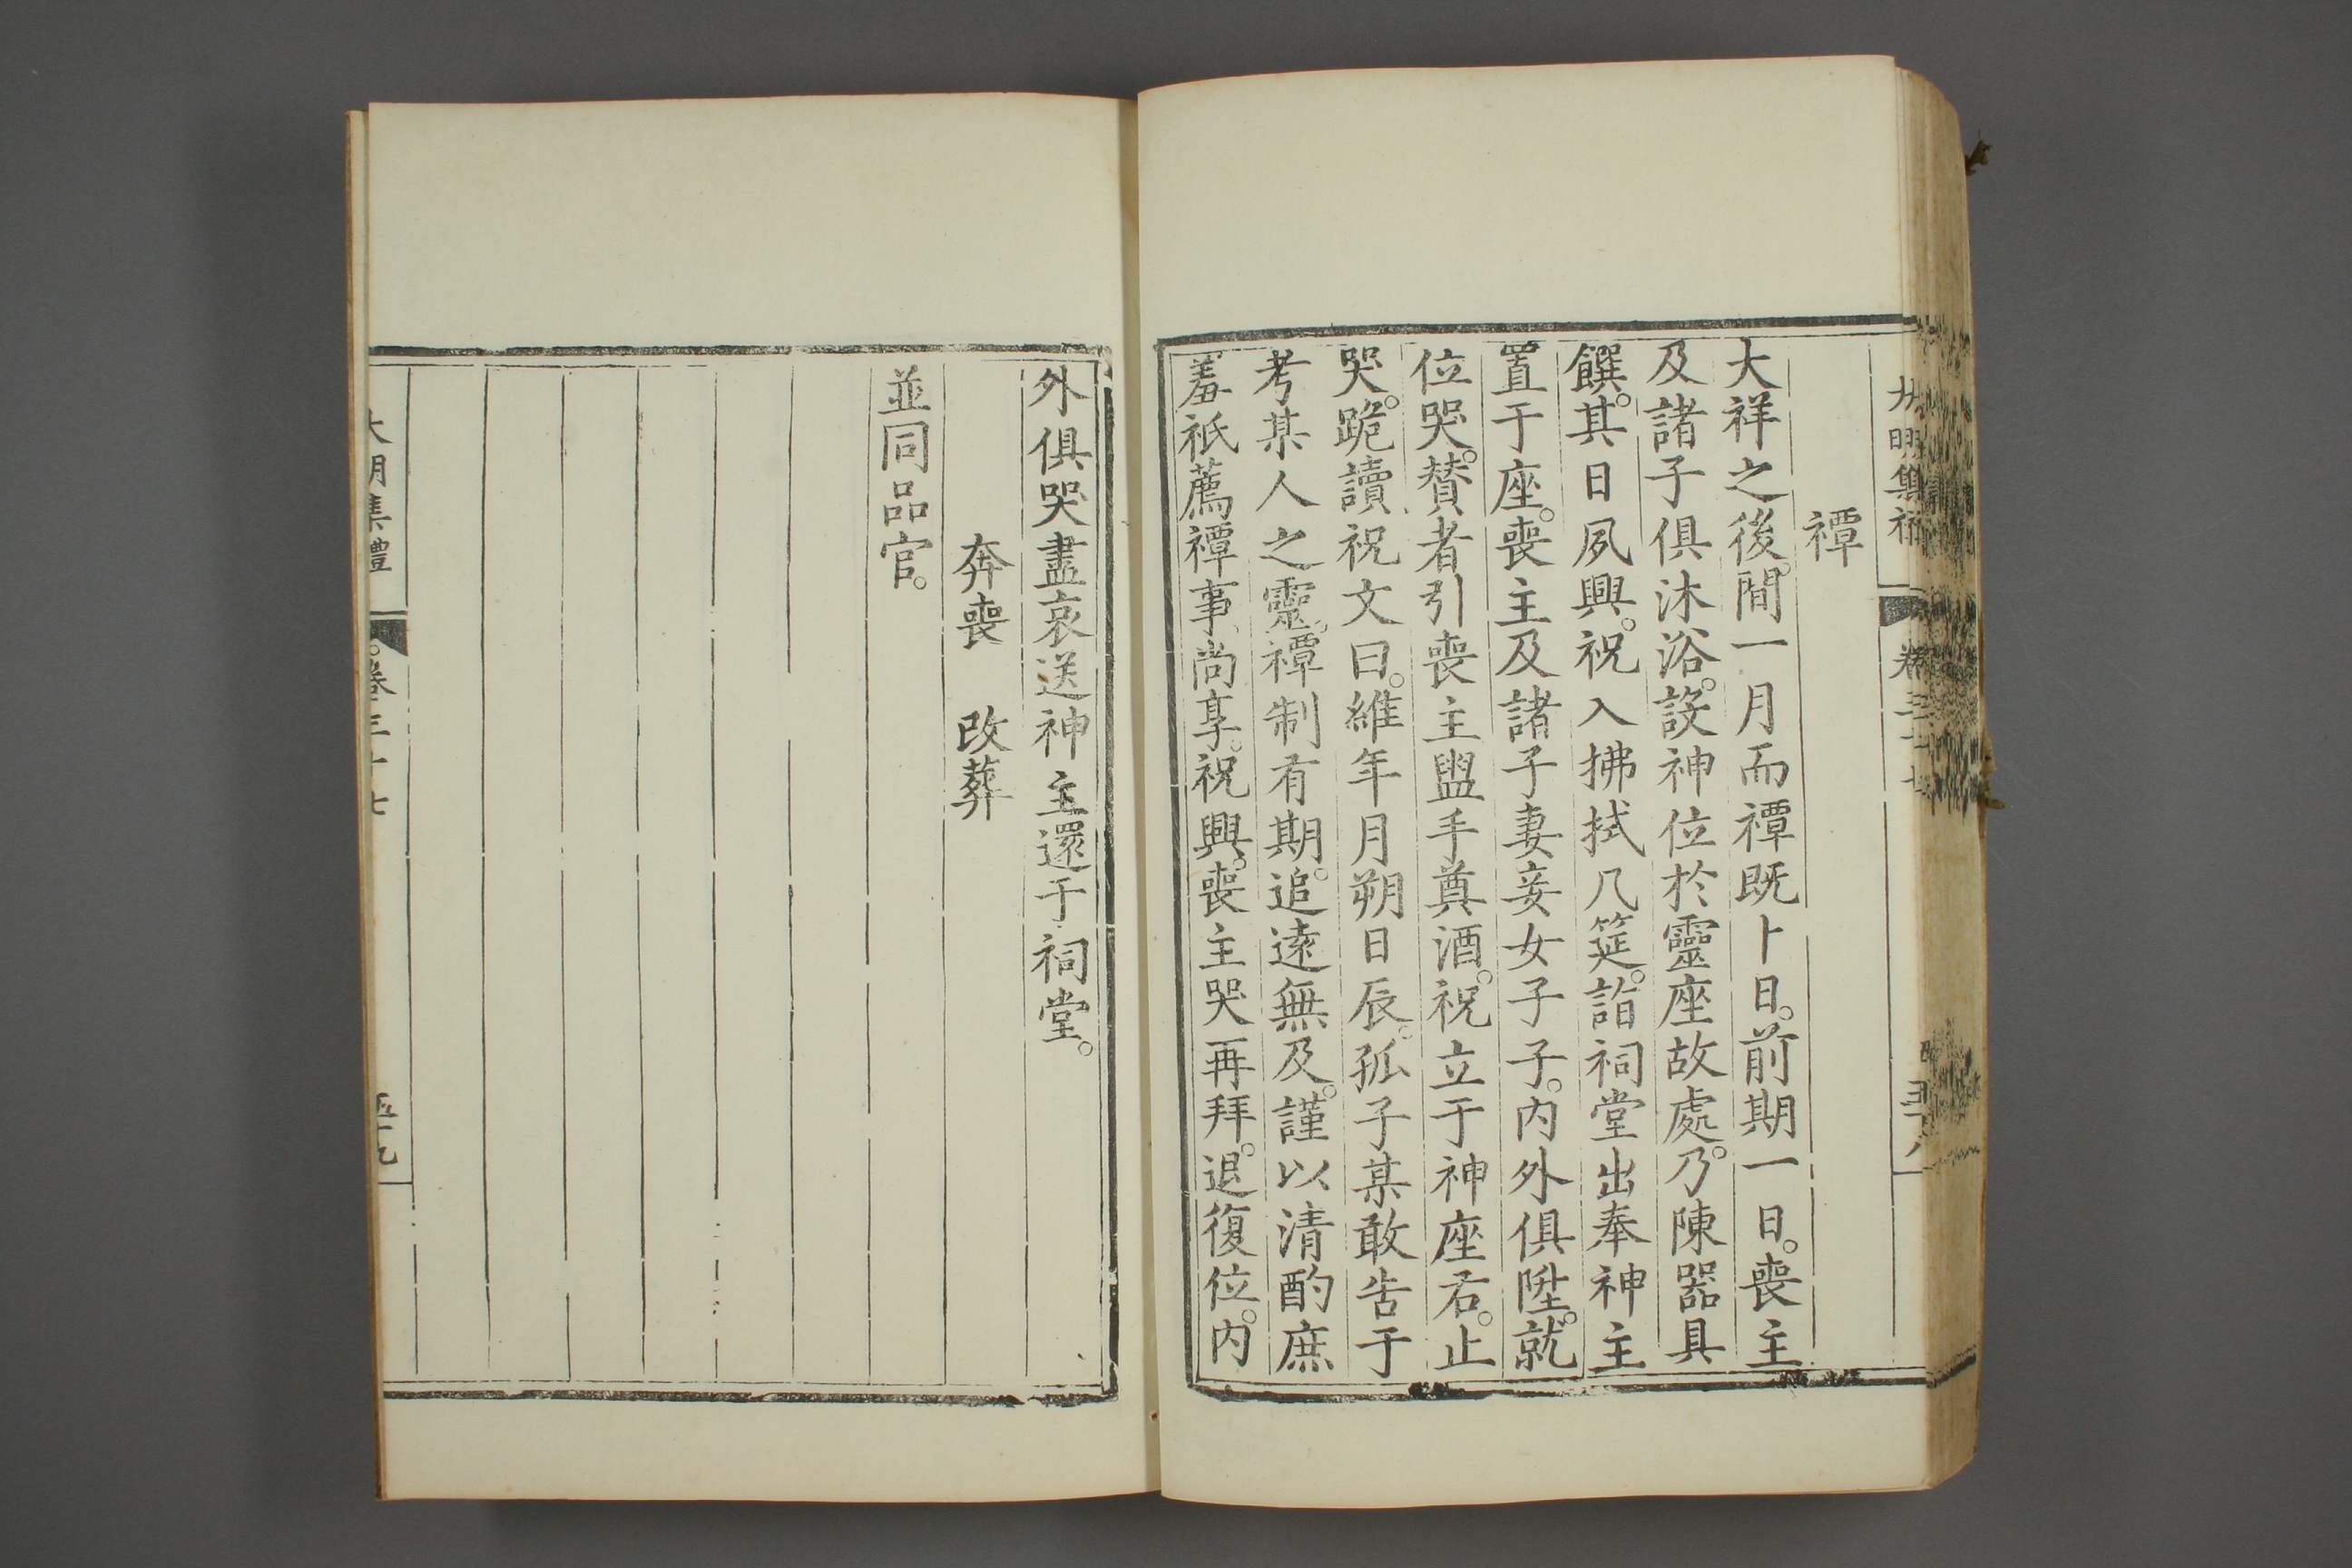 禫
大祥之後。間一月而禫既卜日。前期一日。喪主
及諸子俱沐浴。設神位於靈座故處。乃陳器具
饌。其日夙興。祝入拂拭几筵。詣祠堂出奉神主
置于座。喪主及諸子妻妾女子子。內外俱陞。就
位哭。賛者引喪主盥手奠酒。祝立于神座右。止
哭。跪讀祝文曰。維年月朔日辰。孤子某敢告于
考某人之靈。禫制有期。追遠無及。謹以清酌庶
羞祗薦禫事。尚享。祝興。喪主哭再拜。退復位。內
外俱哭盡哀送神主還于祠堂。
奔喪　改葬
並同品官。
大明集禮　卷三十七　五十九